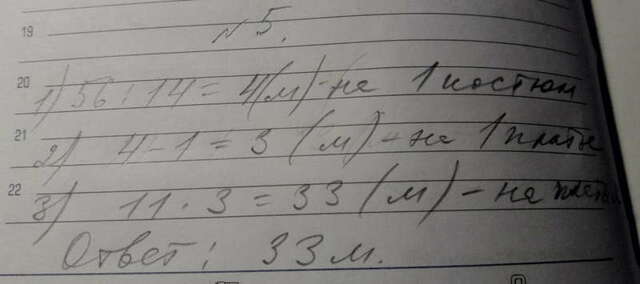 19
№ 5.
20
1) 56 : 14 = 4(м) - на 1 костюм
21
2) 4 - 1 = 3 (м) - на 1 платье
22
3) 11 · 3 = 33 (м) - на
Ответ: 33 м.